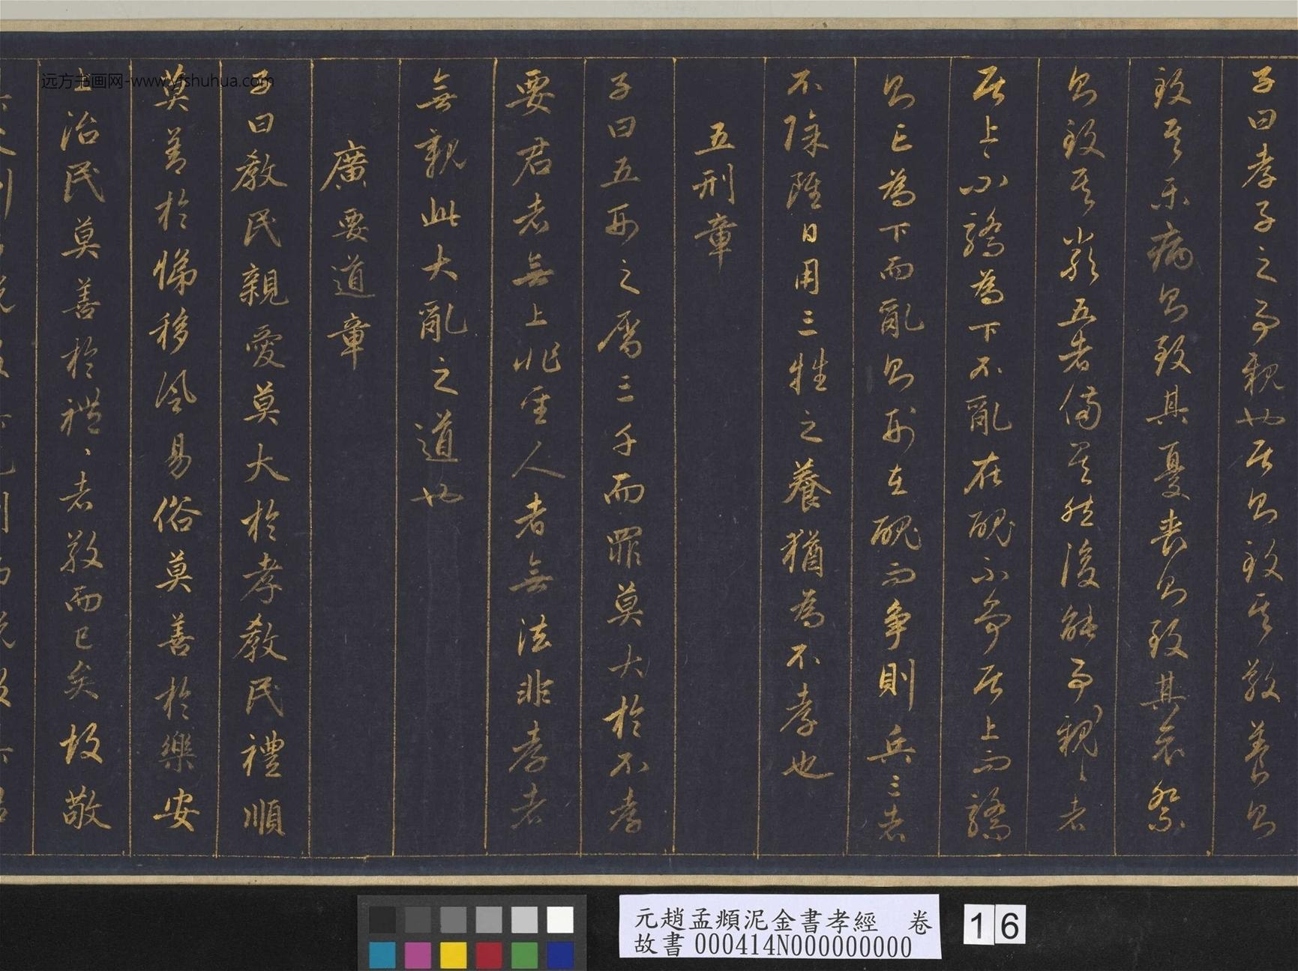 子曰孝子之事親也居則致其敬養則
致其樂病則致其憂喪則致其哀祭
則致其嚴五者備矣然後能事〻親〻者
居上不驕為下不亂在醜不爭居上而驕
則亡為下而亂則刑在醜而爭則兵三者
不除雖日用三牲之養猶為不孝也
五刑章
子曰五刑之屬三千而罪莫大於不孝
要君者無上非聖人者無法非孝者
無親此大亂之道也
廣要道章
子曰教民親愛莫大於孝教民禮順
莫善於悌移風易俗莫善於樂安
上治民莫善於禮〻者敬而已矣故敬
远方书画网-www.yfshuhua.com
元趙孟頫泥金書孝經 卷
故書 000414N000000000
16